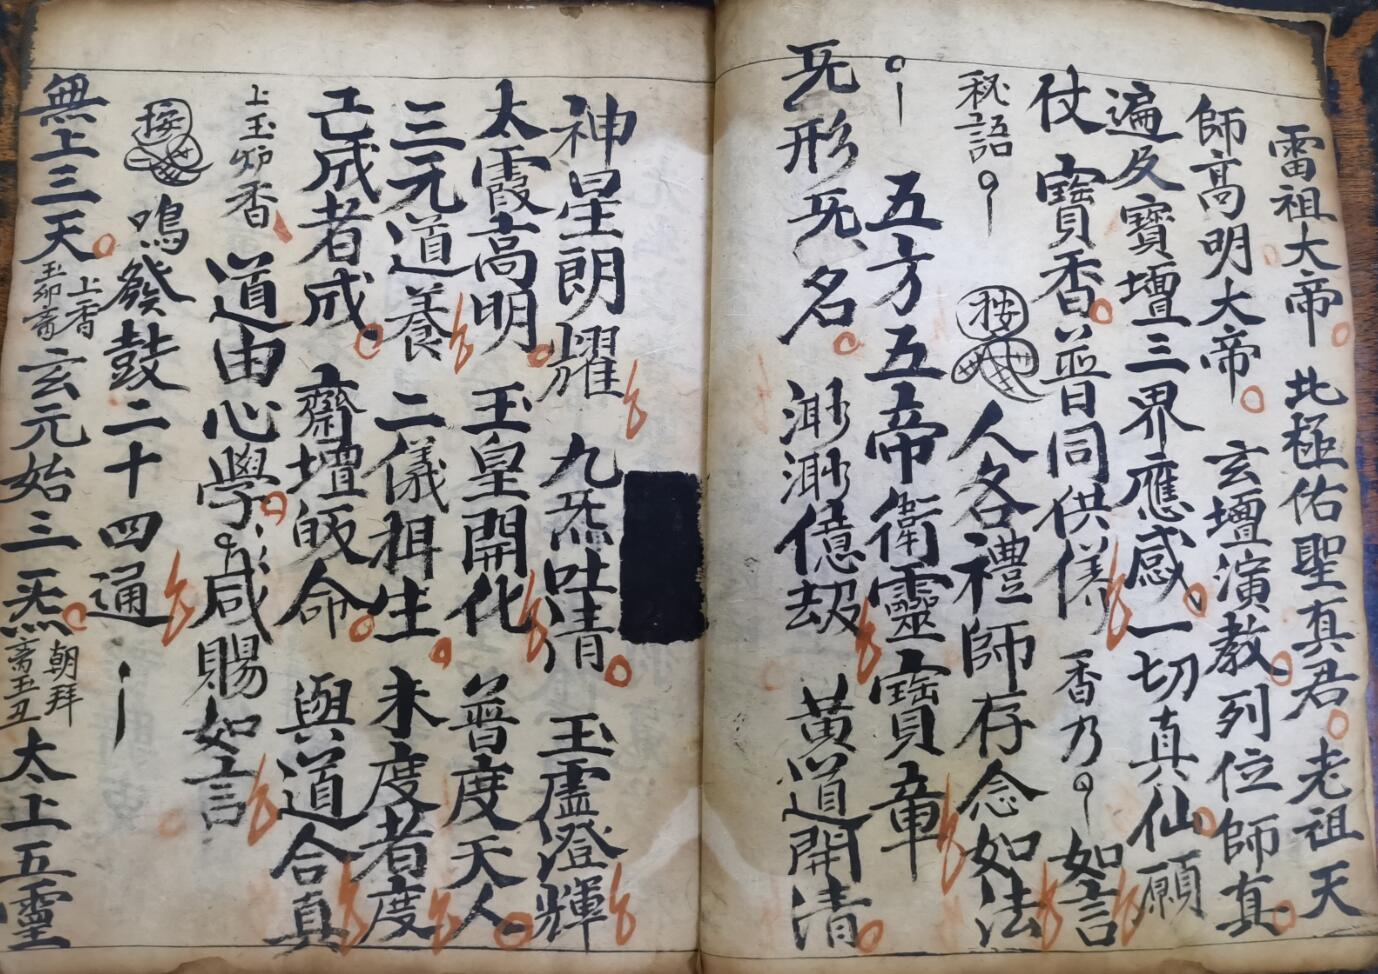 雷祖大帝 北極佑聖真君 老祖天
師高明大帝 玄壇演教列位師真
遍及寶壇三界應感一切真仙願
仗 寶香普同供俻 香乃 如言
秘語 按 人各禮師存念如法
五方五帝衛靈寶章
旡形旡名 渺渺億劫 黃道開清
神星朗耀 九炁吐清 玉虛澄輝
太霞高明 玉皇開化 普度天人
三元道養 二儀狙生 未度者度
已成者成 齋壇皈命 與道合真
上玉炉香 道由心學 咸賜如言
按 鳴發鼓二十四通
無上三天 上香 玄元始三炁 朝拜 太上五靈